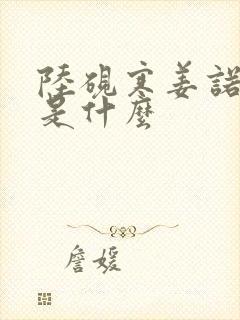 陸硯寒姜諾
是什麼
詹媛